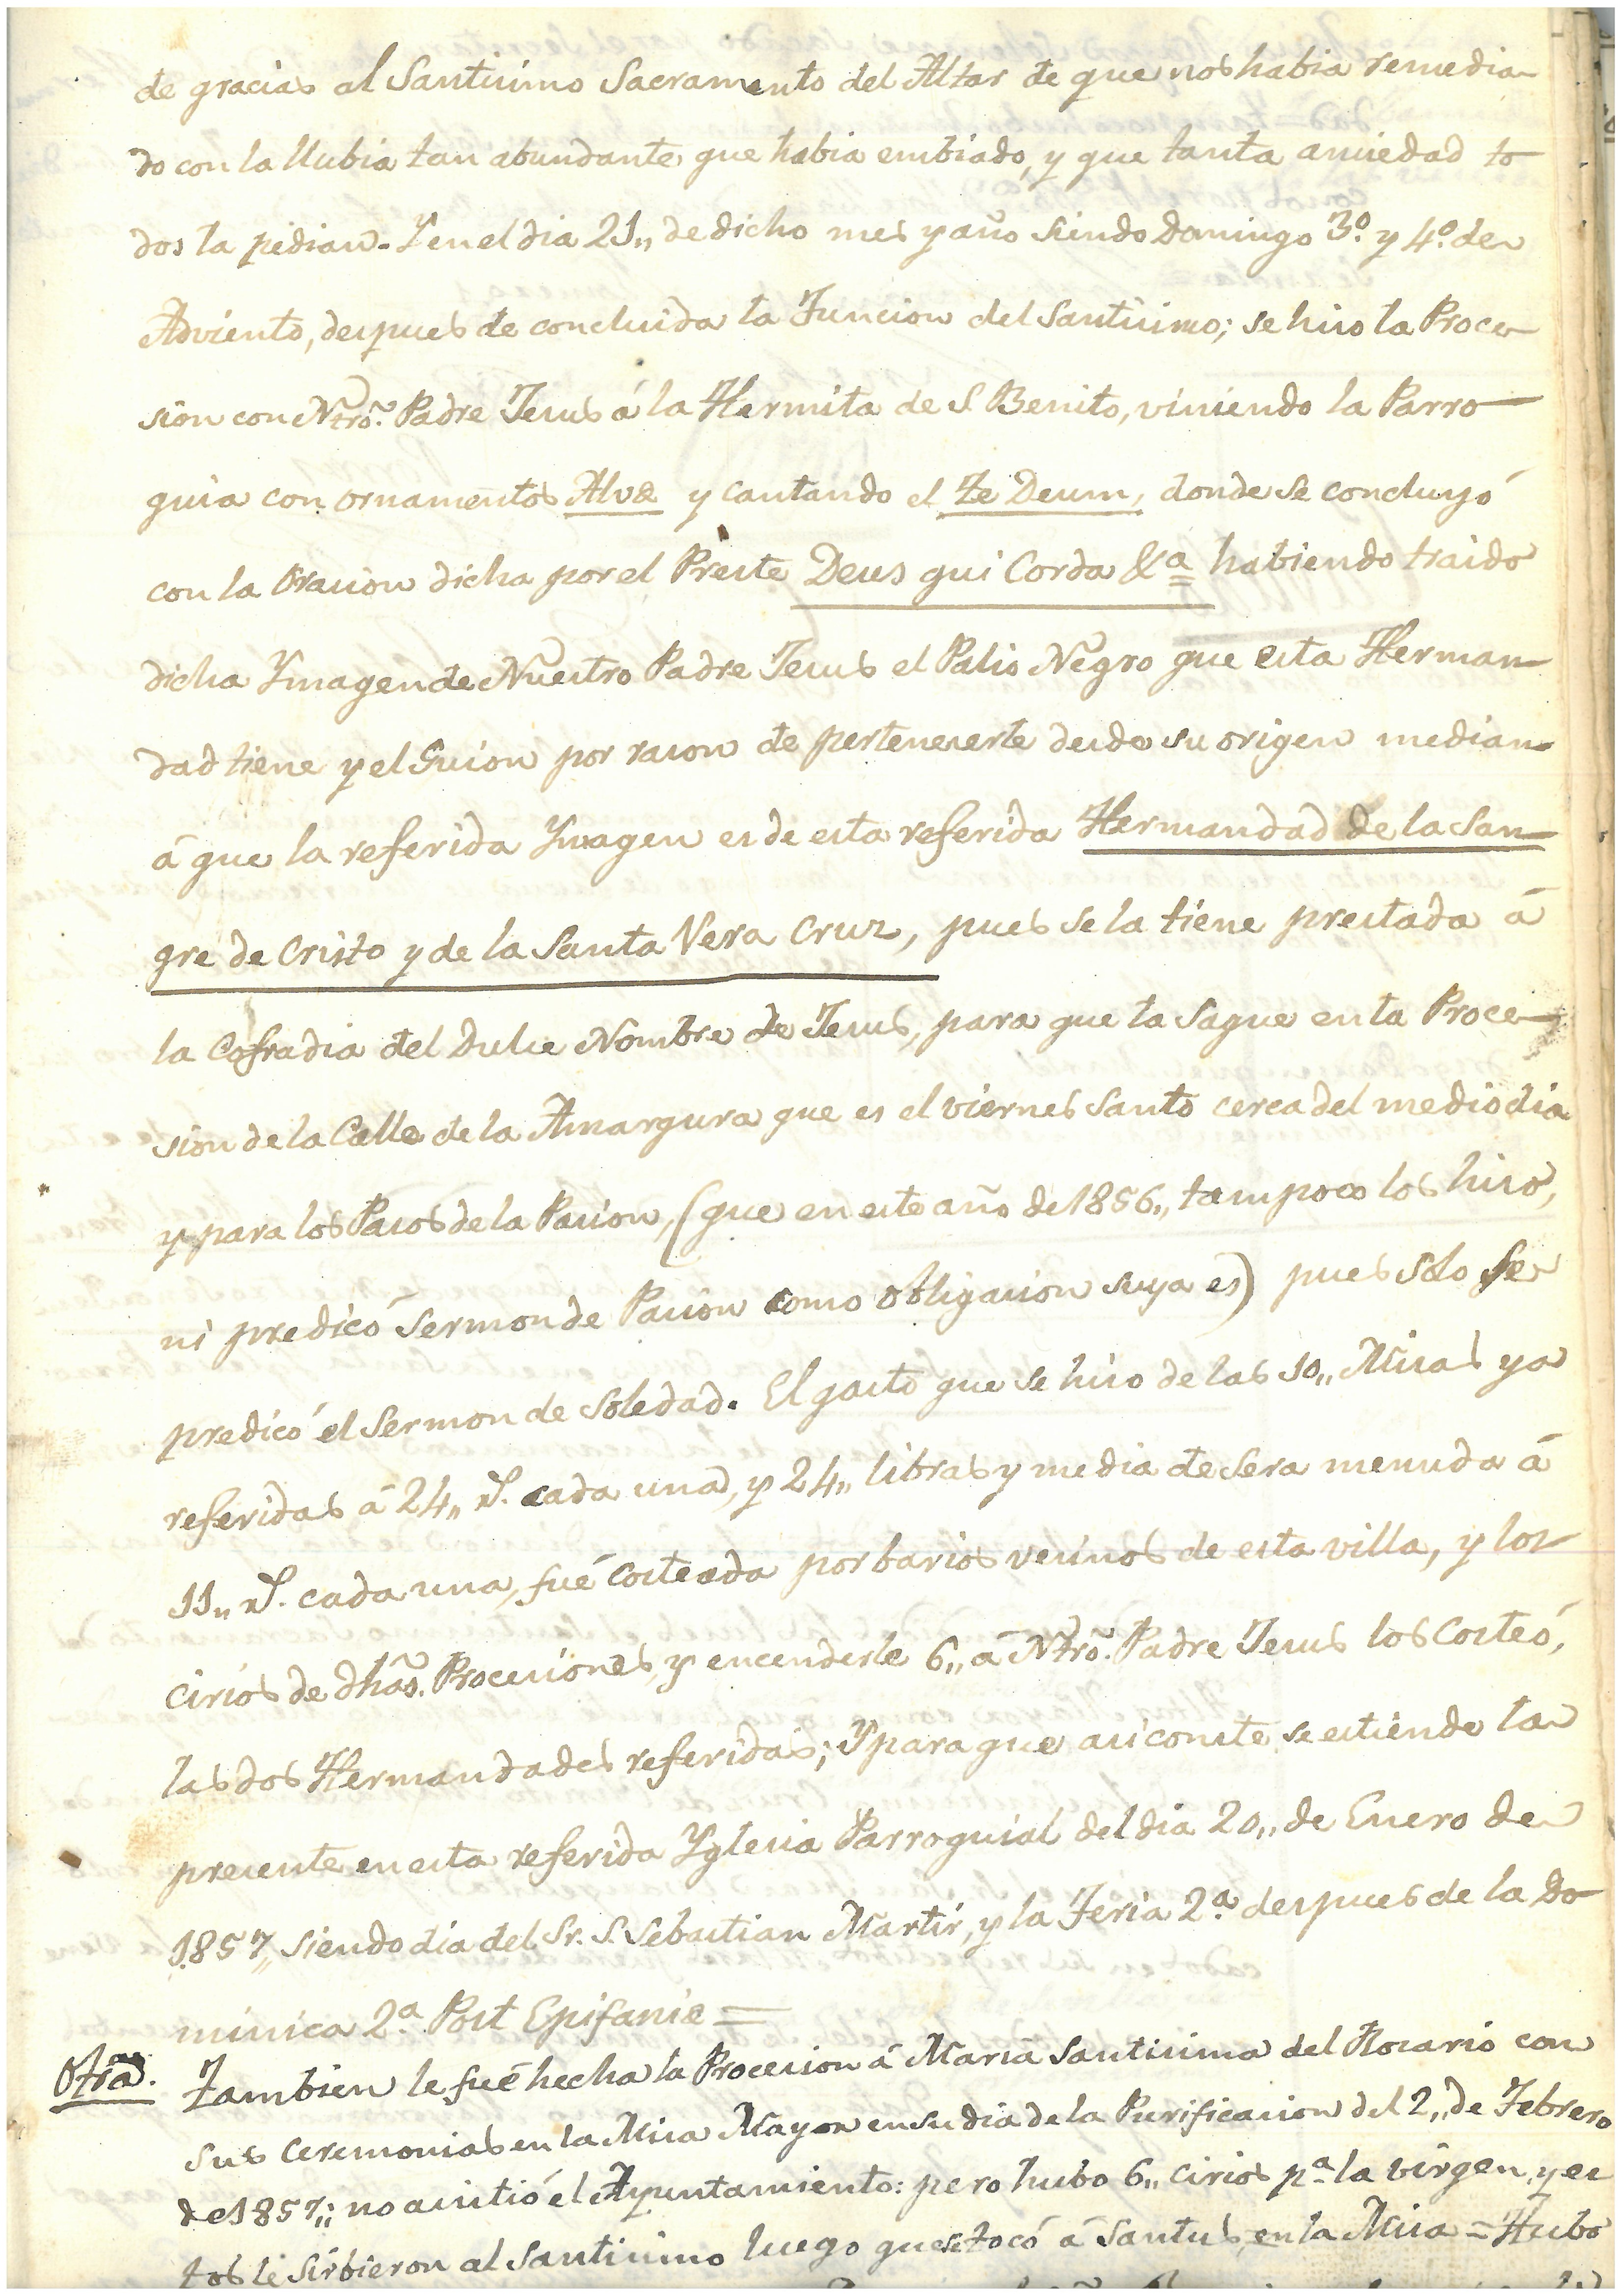 de gracias al Santisimo Sacramento del Altar de que nos habia remedia-
do con la llubia tan abundante, que habia embiado, y que tanta ansiedad to-
dos la pedian. Y en el dia 21,, de dicho mes y año siendo Domingo 3º. y 4º. de
Adviento, despues de concluida la Funcion del Santisimo; se hiso la Proce-
sion con Ntrõ. Padre Jesus á la Hermita de S. Benito, viniendo la Parro-
quia con ornamentos Alvæ y cantando el Te Deum, donde se concluyó
con la Oracion dicha por el Preste Deus qui Corda &ª habiendo traido
dicha Ymagen de Nuestro Padre Jesus el Palio Negro que esta Herman-
dad tiene y el Guion por rason de perteneserle desde su origen median-
á que la referida Ymagen es de esta referida Hermandad de la San-
gre de Cristo y de la Santa Vera Cruz, pues se la tiene prestada á
la Cofradia del Dulce Nombre de Jesus, para que la saque en la Proce-
sion de la Calle de la Amargura que es el viernes Santo cerca del mediodia
y para los Pasos de la Pasion, (que en este año de 1856,, tampoco los hiso,
ni predicó Sermon de Pasion como obligasion suya es) pues solo se
predicó el Sermon de Soledad. El gasto que se hiso de las 10,, Misas ya
referidas á 24,, rs. cada una, y 24,, libras y media de sera menuda á
11,, rs. cada una, fué costeada por barios vesinos de esta villa, y los
cirios de dhãs. Procesiones, y encenderle 6,, á Ntrõ. Padre Jesus los costeó,
las dos Hermandades referidas; Y para que asi conste se estiende la
presente en esta referida Yglesia Parroquial del dia 20,, de Enero de
1857,, siendo dia del Sr. S. Sebastian Martir, y la Feria 2ª. despues de la Do-
minica 2ª. Post Epifaniæ =
Otrã. Tambien le fué hecha la Procesion á Maria Santisima del Rosario con
sus ceremonias en la Misa Mayor en su dia de la Purificasion del 2,, de Febrero
de 1857,,; no asistió el Ayuntamiento: pero hubo 6,, cirios pª. la virgen, y es
tos le sirbieron al Santisimo luego que se tocó á Santus, en la Misa = Hubo